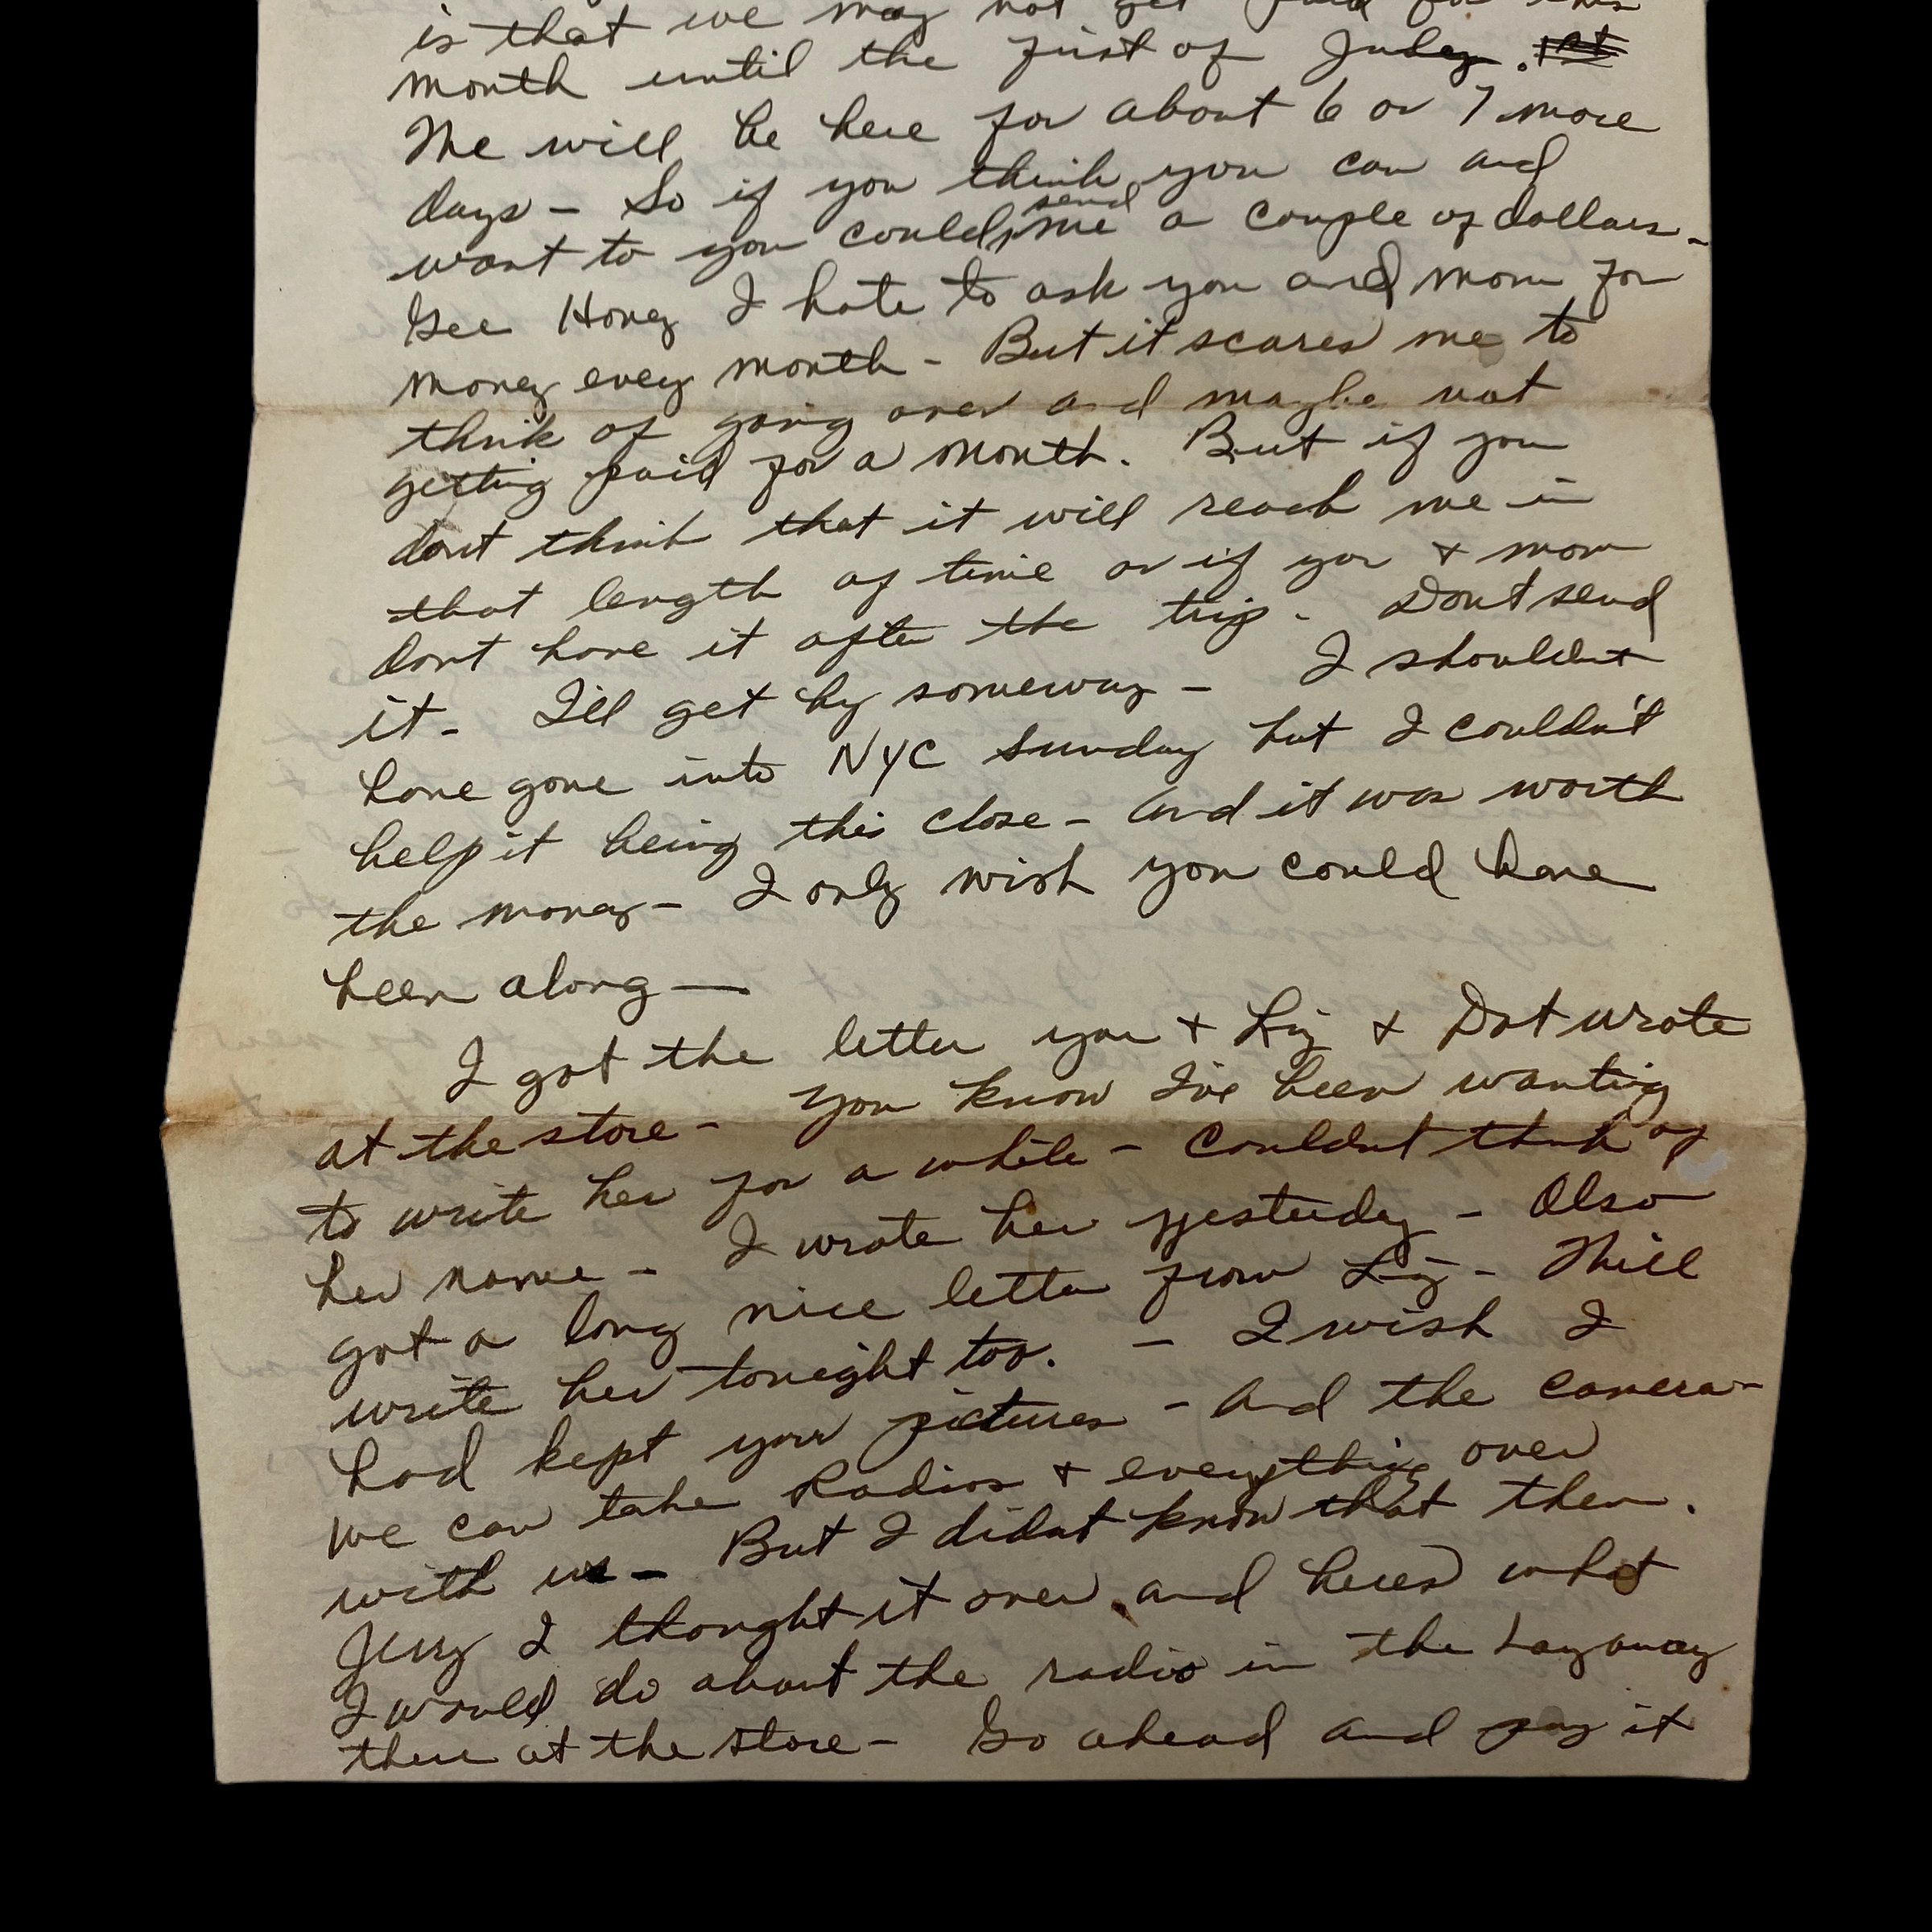 is that we may not get paid for this
month until the first of July. 1st
We will be here for about 6 or 7 more
days - So if you think you can and
want to you could send me a couple of dollars -
Gee Honey I hate to ask you and mom for
money every month - But it scares me to
think of going over and maybe not
getting paid for a month. But if you
dont think that it will reach me in
that length of time or if you + mom
dont have it after the trip - Dont send
it - I'll get by someway - I shouldnt
have gone into NYC Sunday but I couldn't
help it being this close - and it was worth
the money - I only wish you could have
been along —
I got the letter you + Liz + Dot wrote
at the store - you know I've been wanting
to write her for a while - couldnt think of
her name - I wrote her yesterday - Also
got a long nice letter from Liz - Will
write her tonight too. - I wish I
had kept your pictures - and the camera -
we can take Radios + everything over
with us - But I didnt know that then.
Jerry I thought it over and heres what
I would do about the radio in the Layaway
there at the store - Go ahead and pay it